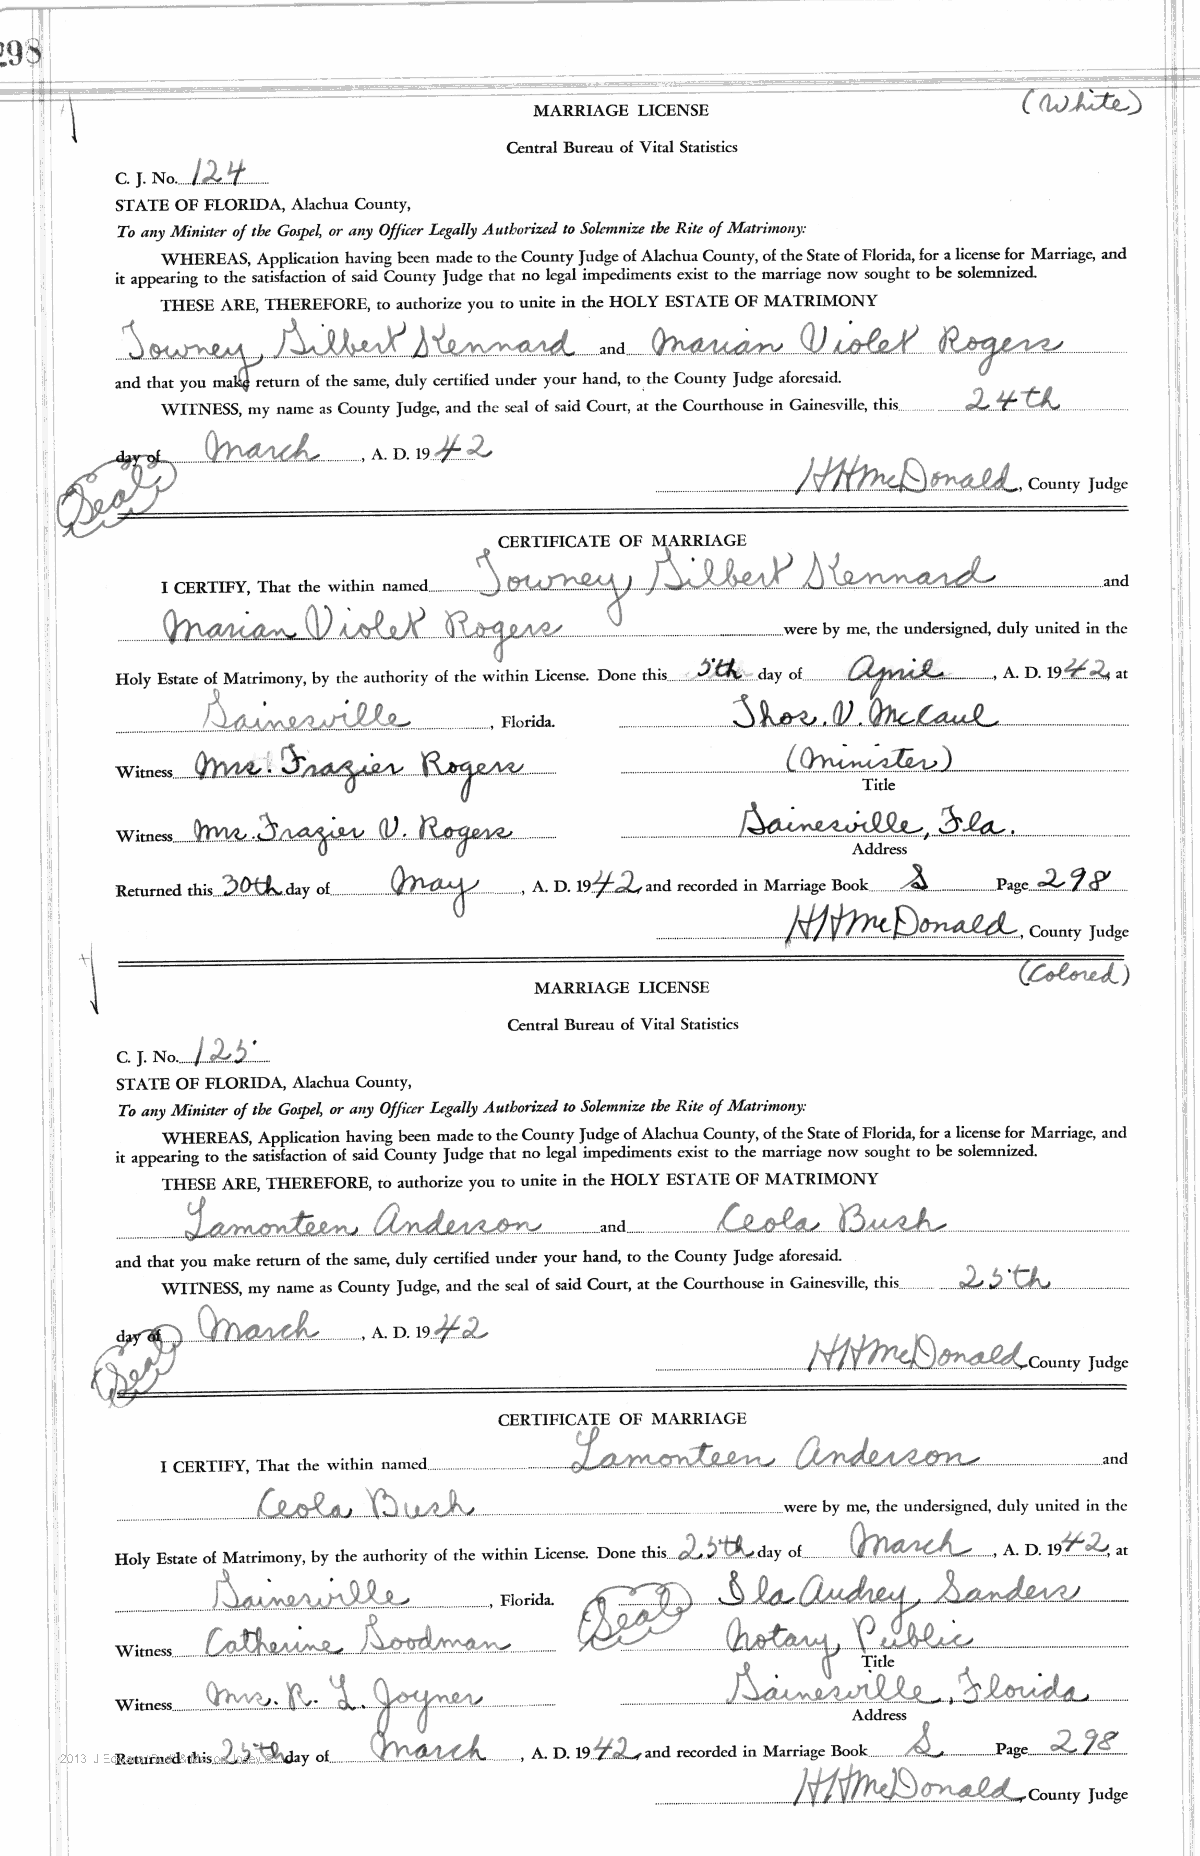 298
(White)
MARRIAGE LICENSE
Central Bureau of Vital Statistics
C. J. No. 124
STATE OF FLORIDA, Alachua County,
To any Minister of the Gospel, or any Officer Legally Authorized to Solemnize the Rite of Matrimony:
WHEREAS, Application having been made to the County Judge of Alachua County, of the State of Florida, for a license for Marriage, and
it appearing to the satisfaction of said County Judge that no legal impediments exist to the marriage now sought to be solemnized.
THESE ARE, THEREFORE, to authorize you to unite in the HOLY ESTATE OF MATRIMONY
Towney Gilbert Kennard and Marian Violet Rogers
and that you make return of the same, duly certified under your hand, to the County Judge aforesaid.
WITNESS, my name as County Judge, and the seal of said Court, at the Courthouse in Gainesville, this 24th
day of March, A. D. 1942
(Seal)
HH McDonald, County Judge
CERTIFICATE OF MARRIAGE
I CERTIFY, That the within named Towney Gilbert Kennard and
Marian Violet Rogers were by me, the undersigned, duly united in the
Holy Estate of Matrimony, by the authority of the within License. Done this 5th day of April, A. D. 1942, at
Gainesville, Florida. Thos. V. McCaul
Witness Mrs. Frazier Rogers (Minister)
Title
Witness Mrs. Frazier V. Rogers Gainesville, Fla.
Address
Returned this 30th day of May, A. D. 1942, and recorded in Marriage Book S Page 298
HH McDonald, County Judge
(Colored)
MARRIAGE LICENSE
Central Bureau of Vital Statistics
C. J. No. 125
STATE OF FLORIDA, Alachua County,
To any Minister of the Gospel, or any Officer Legally Authorized to Solemnize the Rite of Matrimony:
WHEREAS, Application having been made to the County Judge of Alachua County, of the State of Florida, for a license for Marriage, and
it appearing to the satisfaction of said County Judge that no legal impediments exist to the marriage now sought to be solemnized.
THESE ARE, THEREFORE, to authorize you to unite in the HOLY ESTATE OF MATRIMONY
Lamonteen Anderson and Ceola Bush
and that you make return of the same, duly certified under your hand, to the County Judge aforesaid.
WITNESS, my name as County Judge, and the seal of said Court, at the Courthouse in Gainesville, this 25th
day of March, A. D. 1942
(Seal)
HH McDonald, County Judge
CERTIFICATE OF MARRIAGE
I CERTIFY, That the within named Lamonteen Anderson and
Ceola Bush were by me, the undersigned, duly united in the
Holy Estate of Matrimony, by the authority of the within License. Done this 25th day of March, A. D. 1942, at
Gainesville, Florida. (Seal) Ila Audrey Sanders
Witness Catherine Goodman Notary Public
Title
Witness Mrs. R. L. Joyner Gainesville, Florida
Address
2013 J
Returned this 25th day of March, A. D. 1942, and recorded in Marriage Book S Page 298
HH McDonald, County Judge